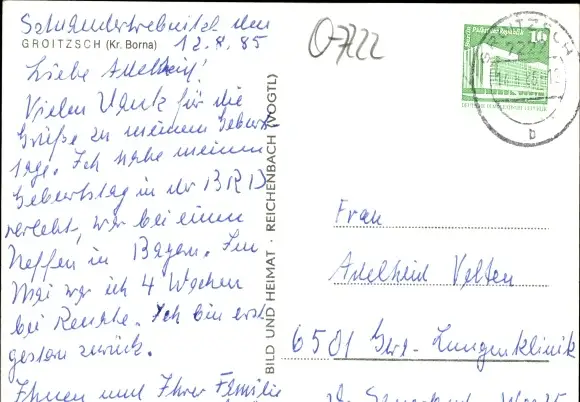 Schnaudertrebnitz den
GROITZSCH (Kr. Borna)
12.8.85
Liebe Adelheid!
Vielen Dank für die
Grüße zu meinem Geburts
tage. Ich habe meinen
Geburtstag in der BRD
verlebt, war bei einem
Neffen in Bayern. Im
Mai war ich 4 Wochen
bei Renate. Ich bin erst
gestern zurück.
Ihnen und Ihrer Familie
BILD UND HEIMAT · REICHENBACH (VOGTL)
0-7222
Palast der Republik
10
7222
b
Frau
Adelheid Velten
6501 Gera-Lungenklinik